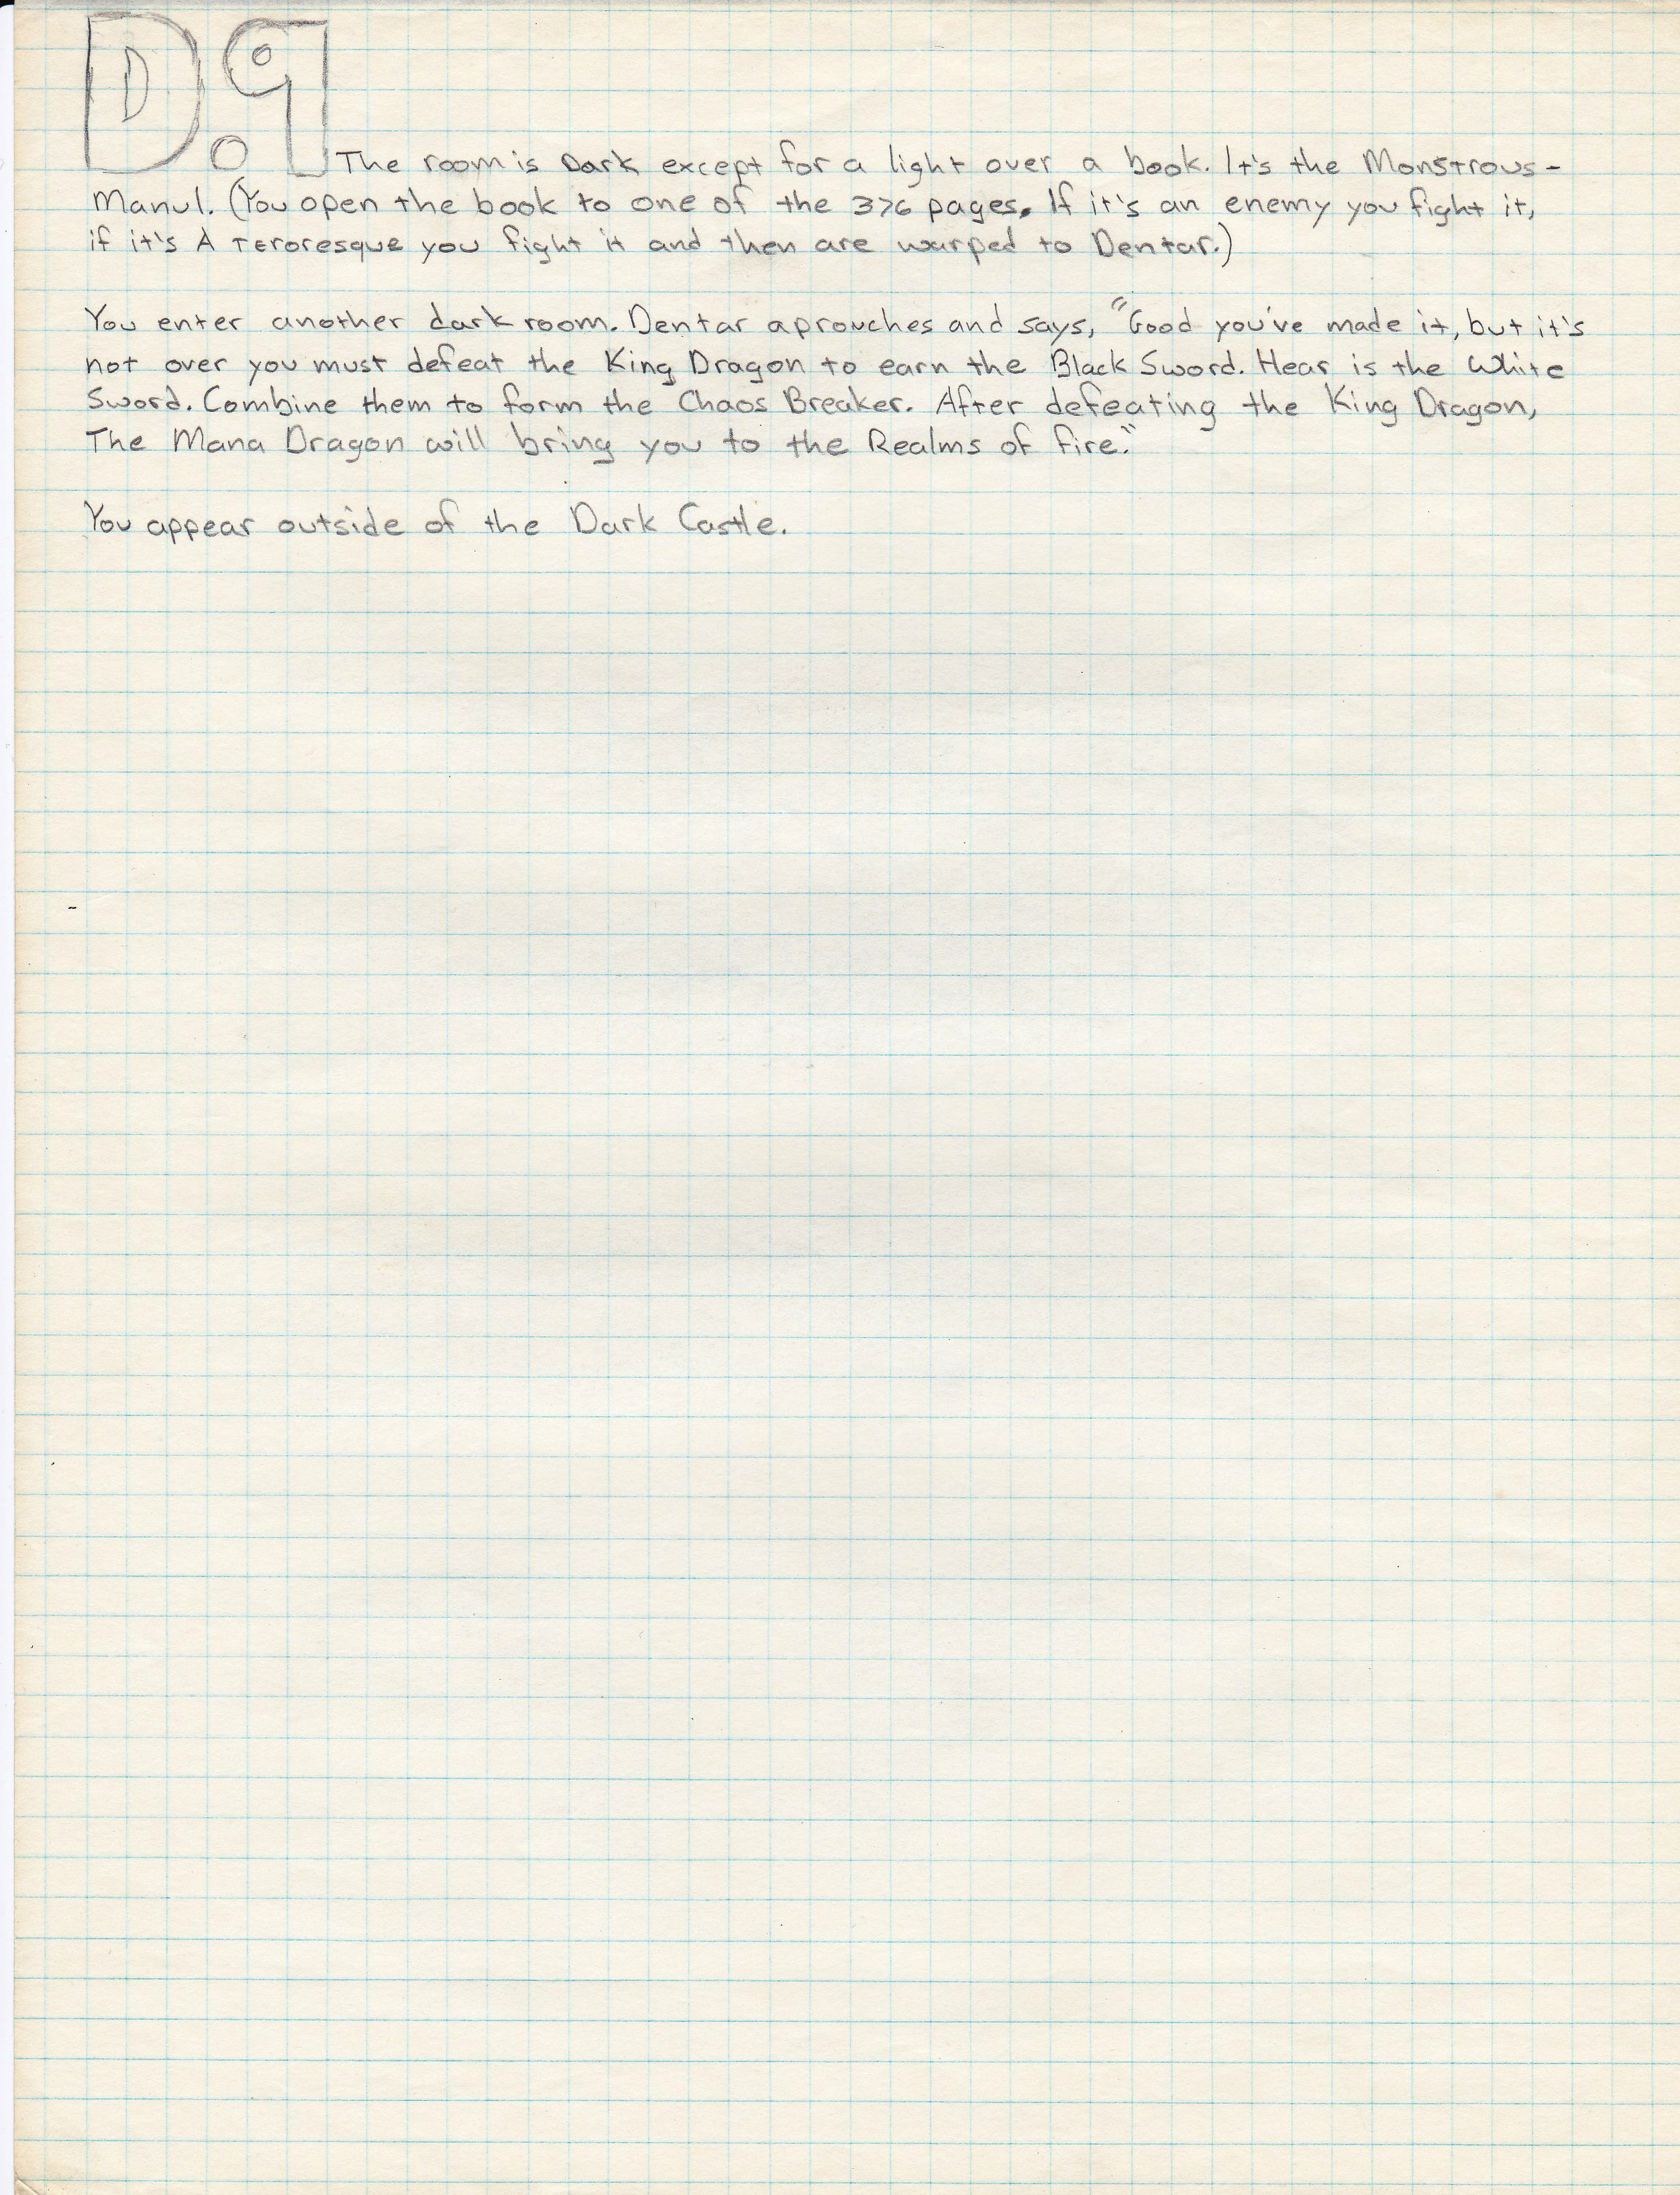 D.9
The room is Dark except for a light over a book. It's the Monstrous-
Manul. (You open the book to one of the 376 pages. If it's an enemy you fight it,
if it's A Teroresque you fight it and then are warped to Dentar.)
You enter another dark room. Dentar aprouches and says, "Good you've made it, but it's
not over you must defeat the King Dragon to earn the Black Sword. Hear is the White
Sword. Combine them to form the Chaos Breaker. After defeating the King Dragon,
The Mana Dragon will bring you to the Realms of fire."
You appear outside of the Dark Castle.